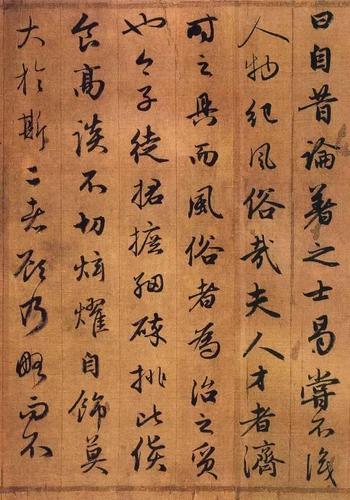 曰自昔論著之士曷嘗不議
人物紀風俗哉夫人才者濟
時之具而風俗者為治之質
也今子徒捃摭細碎排比
食高談不切炫燿自飾莫
大於斯二者顧乃略而不